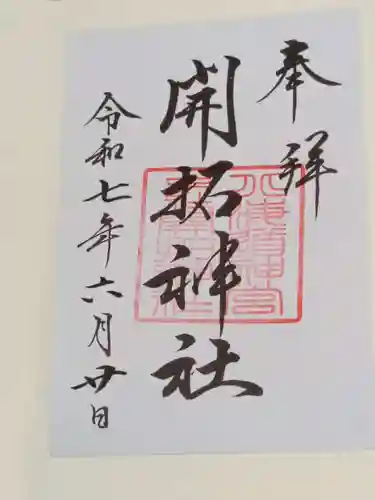 奉拝
開拓神社
令和七年六月廿日